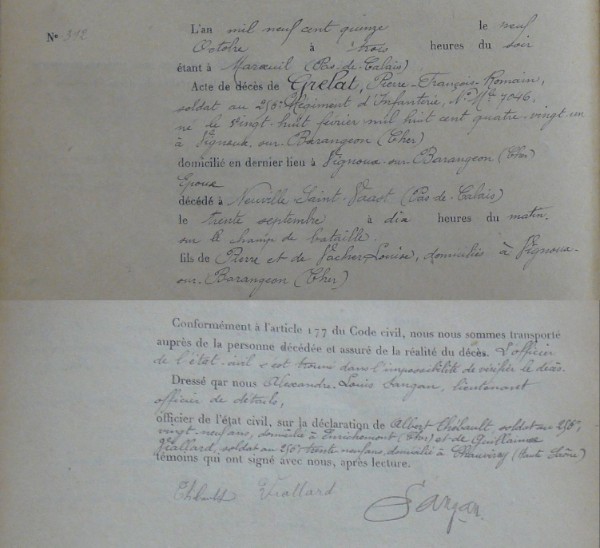 N° 312
L'an mil neuf cent quinze le neuf
Octobre à trois heures du soir
étant à Maroeuil (Pas-de-Calais)
Acte de décès de Grelat, Pierre-François-Romain,
soldat au 256e Régiment d'Infanterie, N° Mle 7046,
né le vingt huit février mil huit cent quatre-vingt un
à Vignoux-sur-Barangeon (Cher)
domicilié en dernier lieu à Vignoux-sur-Barangeon (Cher)
Epoux
décédé à Neuville Saint-Vaast (Pas-de-Calais)
le trente septembre à dix heures du matin.
sur le champ de bataille
fils de Pierre et de Vacher Louise, domiciliés à Vignoux-
sur-Barangeon (Cher)
Conformément à l'article 177 du Code civil, nous nous sommes transporté
auprès de la personne décédée et assuré de la réalité du décès. L'officier
de l'état civil s'est trouvé dans l'impossibilité de vérifier le décès.
Dressé qar nous Alexandre-Louis Sarzan, lieutenant
officier de détails,
officier de l'état civil, sur la déclaration de Albert Thébault soldat au 256e,
vingt-neuf ans, domicilié à Henrichemont (Cher) et de Guillaume
Viallard, soldat au 256e trente-neuf ans, domicilié à (Haute Saône)
témoins qui ont signé avec nous, après lecture.
Thébault Viallard Sarzan